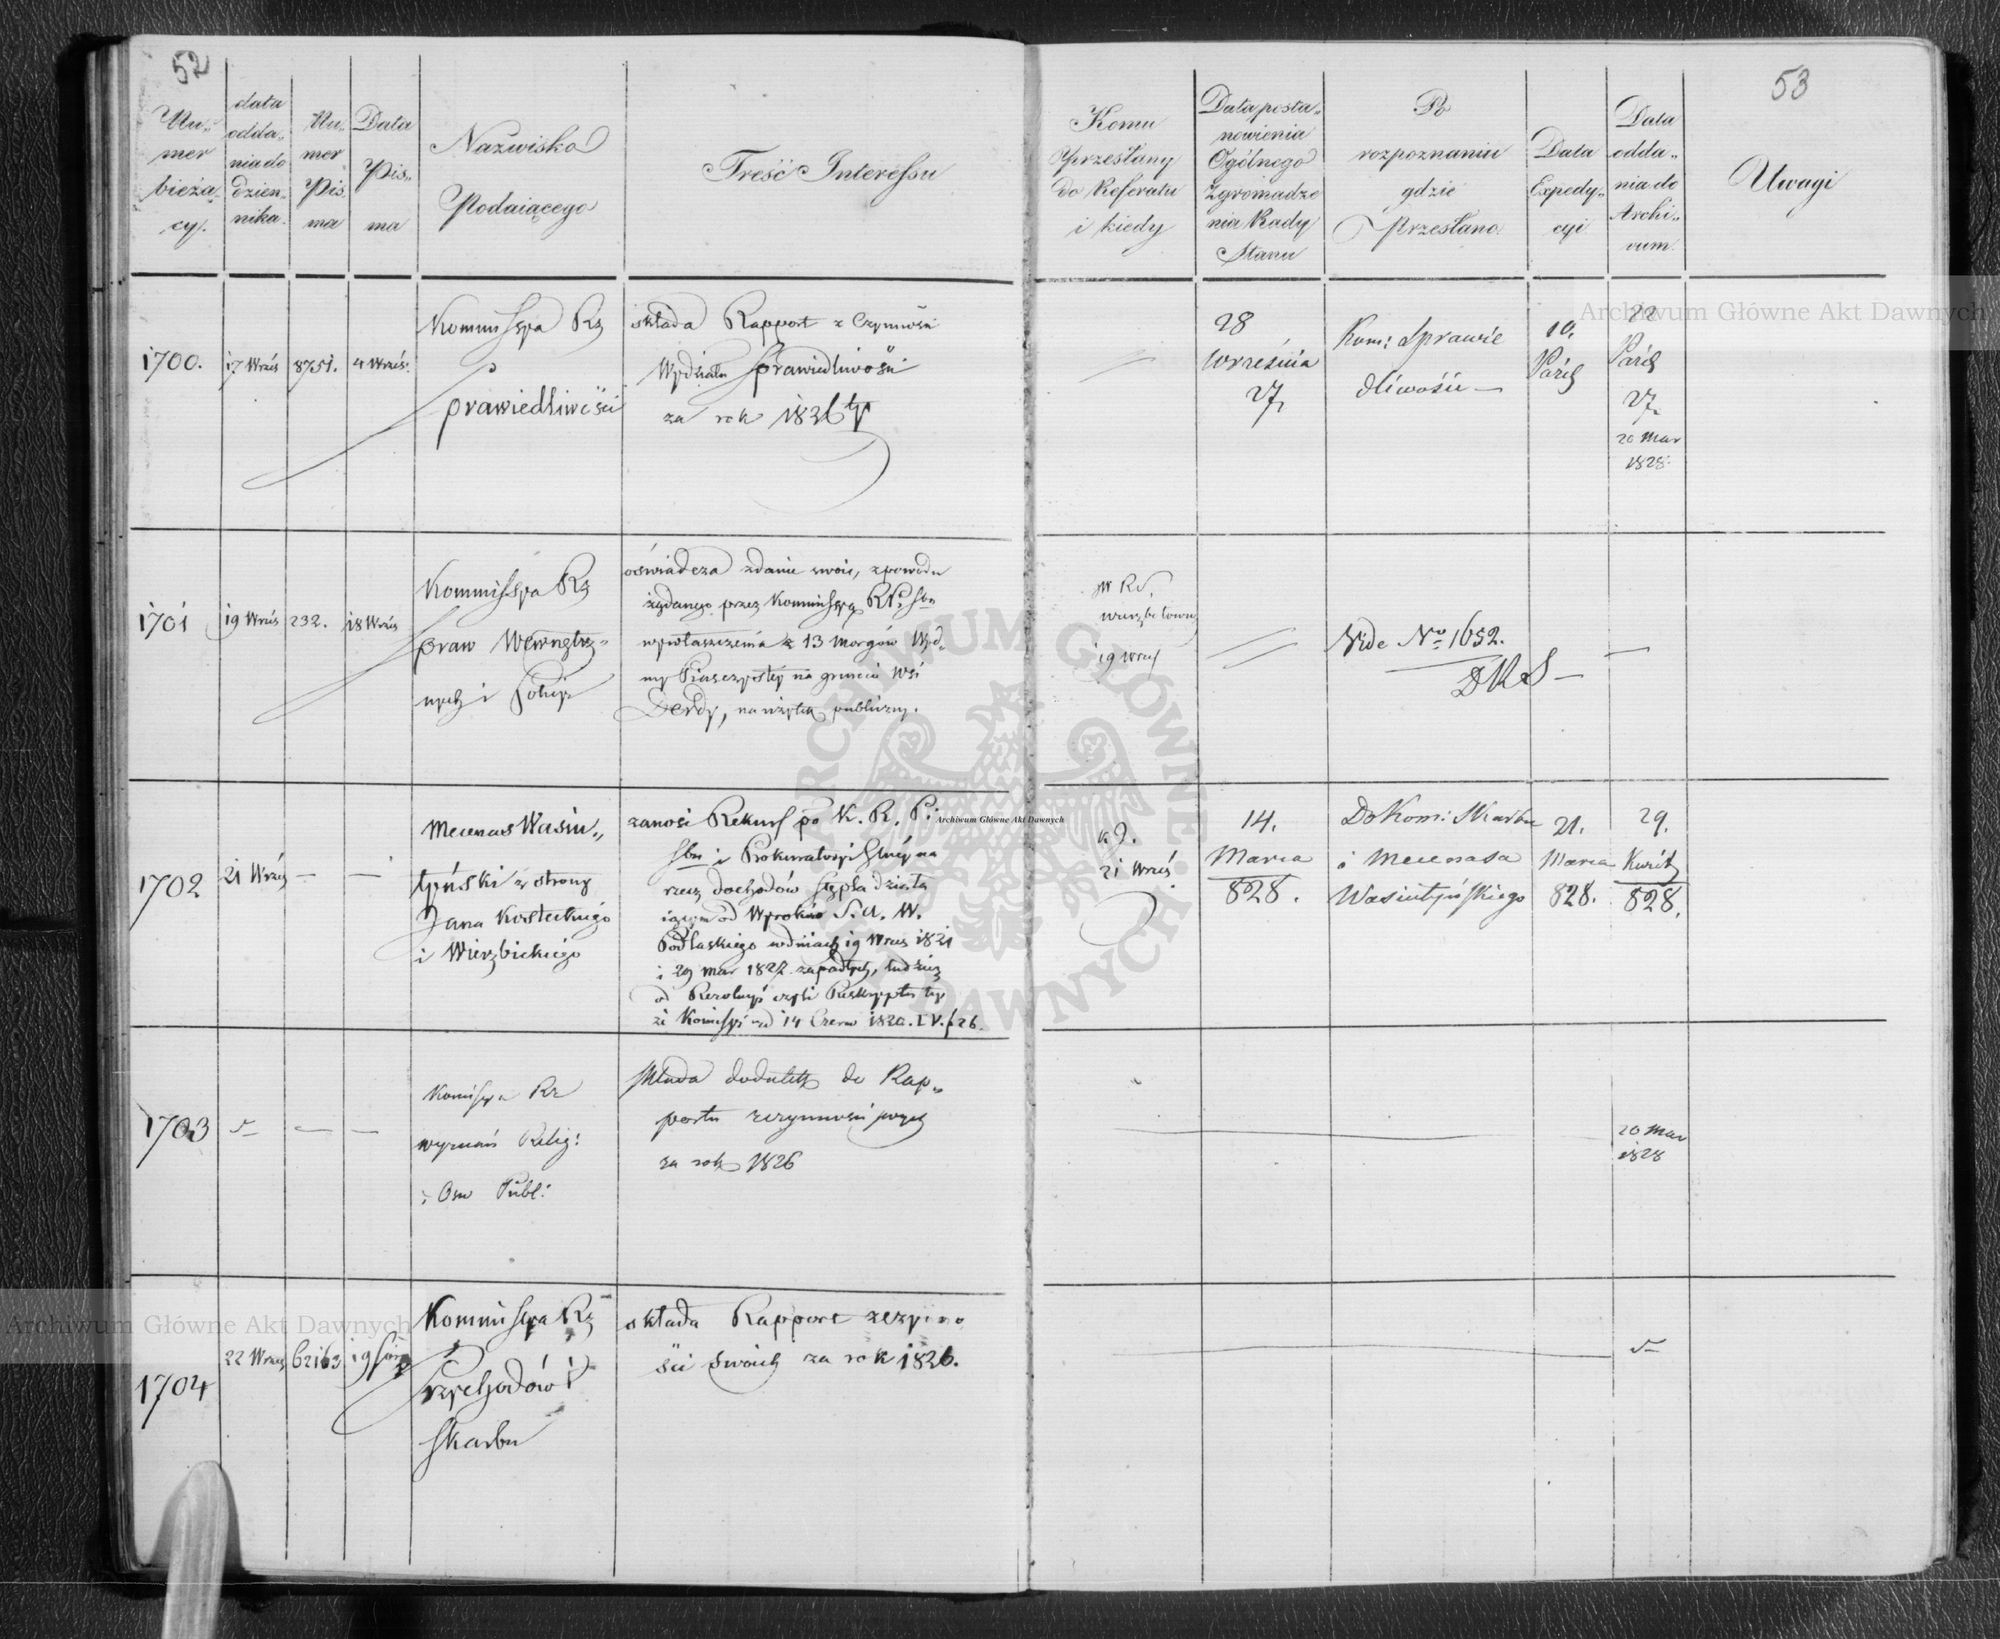 52
Nu-
mer
bieżą-
cy.
data
odda-
nia do
dzien-
nika.
Nu-
mer
Pis-
ma
Data
Pis-
ma
Nazwisko
Podaiącego
Treść Interessu
1700.
17 Wrześ
8751.
4 Wrześ.
Kommissya Rz
Sprawiedliwości
składa Rapport z Czynności
Wydziału Sprawiedliwości
za rok 1826ty
1701
19 Wrześ
232.
18 Wrześ
Kommissya Rz
Spraw Wewnętrz-
nych i Policyi
oświadcza zdanie swoie, z powodu
żądanego przez Kommissyą R. P. Sbu
wywłaszczenia z 13 morgów
na gruncie Wsi
Derdy, na użytek publiczny.
1702
21 Wrześ
—
—
Mecenas Wasiu-
tyński z strony
Jana Kosteckiego
i Wierzbickiego
zanosi Rekurs po K. R. P. i
Sbu i Prokuratoryi
rzecz dochodów
od Wyroków S. A. W.
Podlaskiego w dniach 19 Wrześ 1821
i 29 Mar 1827 zapadłych, tudzież
od Rezolucyi czyli Reskryptu tey
że Komissyi z d 14 Czerw
1703
—
—
Komissya Rz
wyznań Relig:
i Ośw Publ:
składa dodatek do Rap-
portu z czynności swych
za rok 1826
1704
22 Wrześ
62163
19
Kommissya Rz
Przychodów i
Skarbu
składa Rapport z czynno
ści swoich za rok 1826.
53
Komu
przesłany
do Referatu
i kiedy
Data posta-
nowienia
Ogólnego
Zgromadze
nia Rady
Stanu
Po
rozpoznaniu
gdzie
Przesłano.
Data
Expedy-
cyi
Data
odda-
nia do
Archi-
vum.
Uwagi
28
Września
27.
Kom: Sprawie
dliwości —
10.
Paźdz
22
Paźdz
27.
20 Mar
1828.
JW RS.
Wierzbołowicz
19 Wrześ
Vide No 1652.
DKS —
—
21 Wrześ
14.
Marca
828.
Do Kom: Skarbu
i Mecenasa
Wasiutyńskiego
21.
Marca
828.
29.
Kwiet
828.
20 Mar
1828
Archiwum Główne Akt Dawnych
Archiwum Główne Akt Dawnych
Archiwum Główne Akt Dawnych
ARCHIWUM GŁÓWNE AKT DAWNYCH